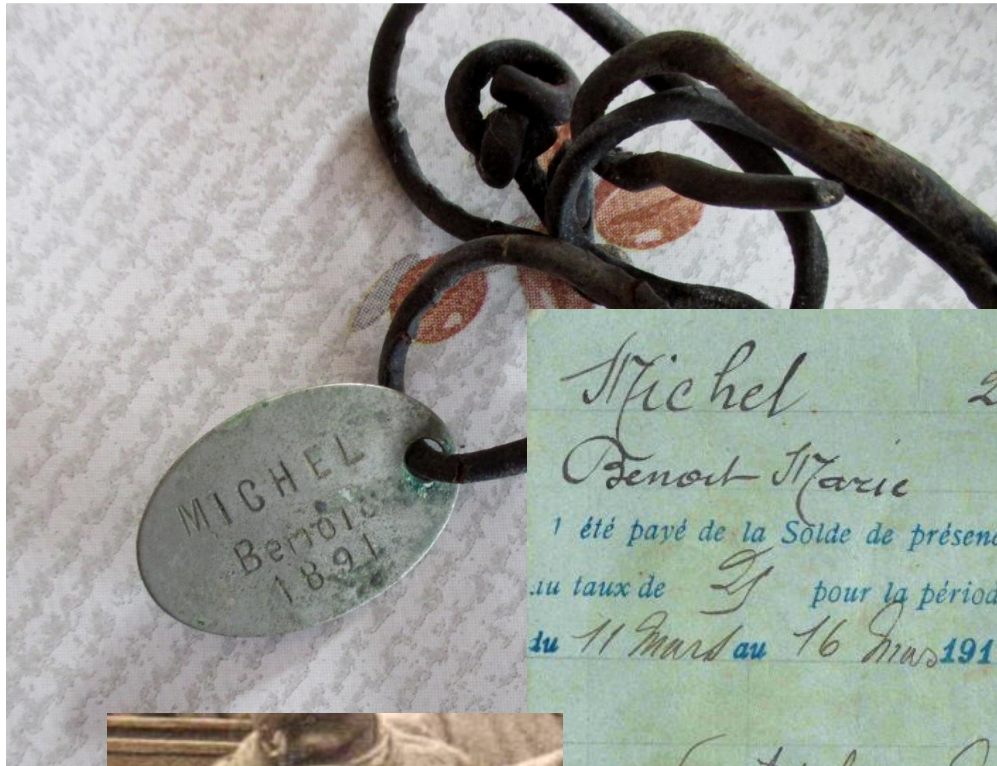 MICHEL
Benoit
1891
Michel 2
Benoit Marie
été payé de la Solde de présenc
au taux de pour la périod
du 11 Mars au 16 Mars 191